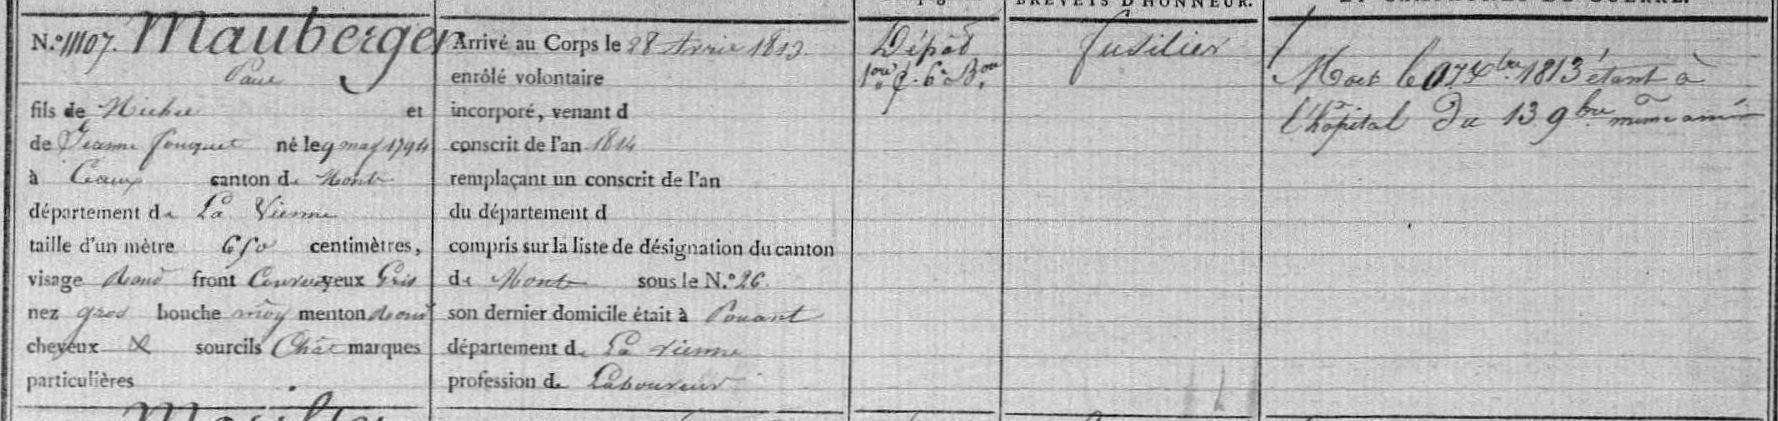 BREVETS D'HONNEUR.
N.° 11107. Mauberger
Paul
fils de Michel et
de Jeanne Fouquet né le 9 may 1794
à Ceaux canton de Monts
département de La Vienne
taille d'un mètre 650 centimètres,
visage Rond front Couvert yeux Gris
nez gros bouche moy menton Rond
cheveux & sourcils Chât marques
particulières
Arrivé au Corps le 28 Avril 1813
enrôlé volontaire
incorporé, venant d
conscrit de l'an 1814
remplaçant un conscrit de l'an
du département d
compris sur la liste de désignation du canton
de Monts sous le N.° 26.
son dernier domicile était à Pouant
département de La Vienne
profession de Laboureur
Dépôt
6e Bon
fusilier
Mort le 17 Xbre 1813 étant à
l'hôpital Du 13 9bre même année